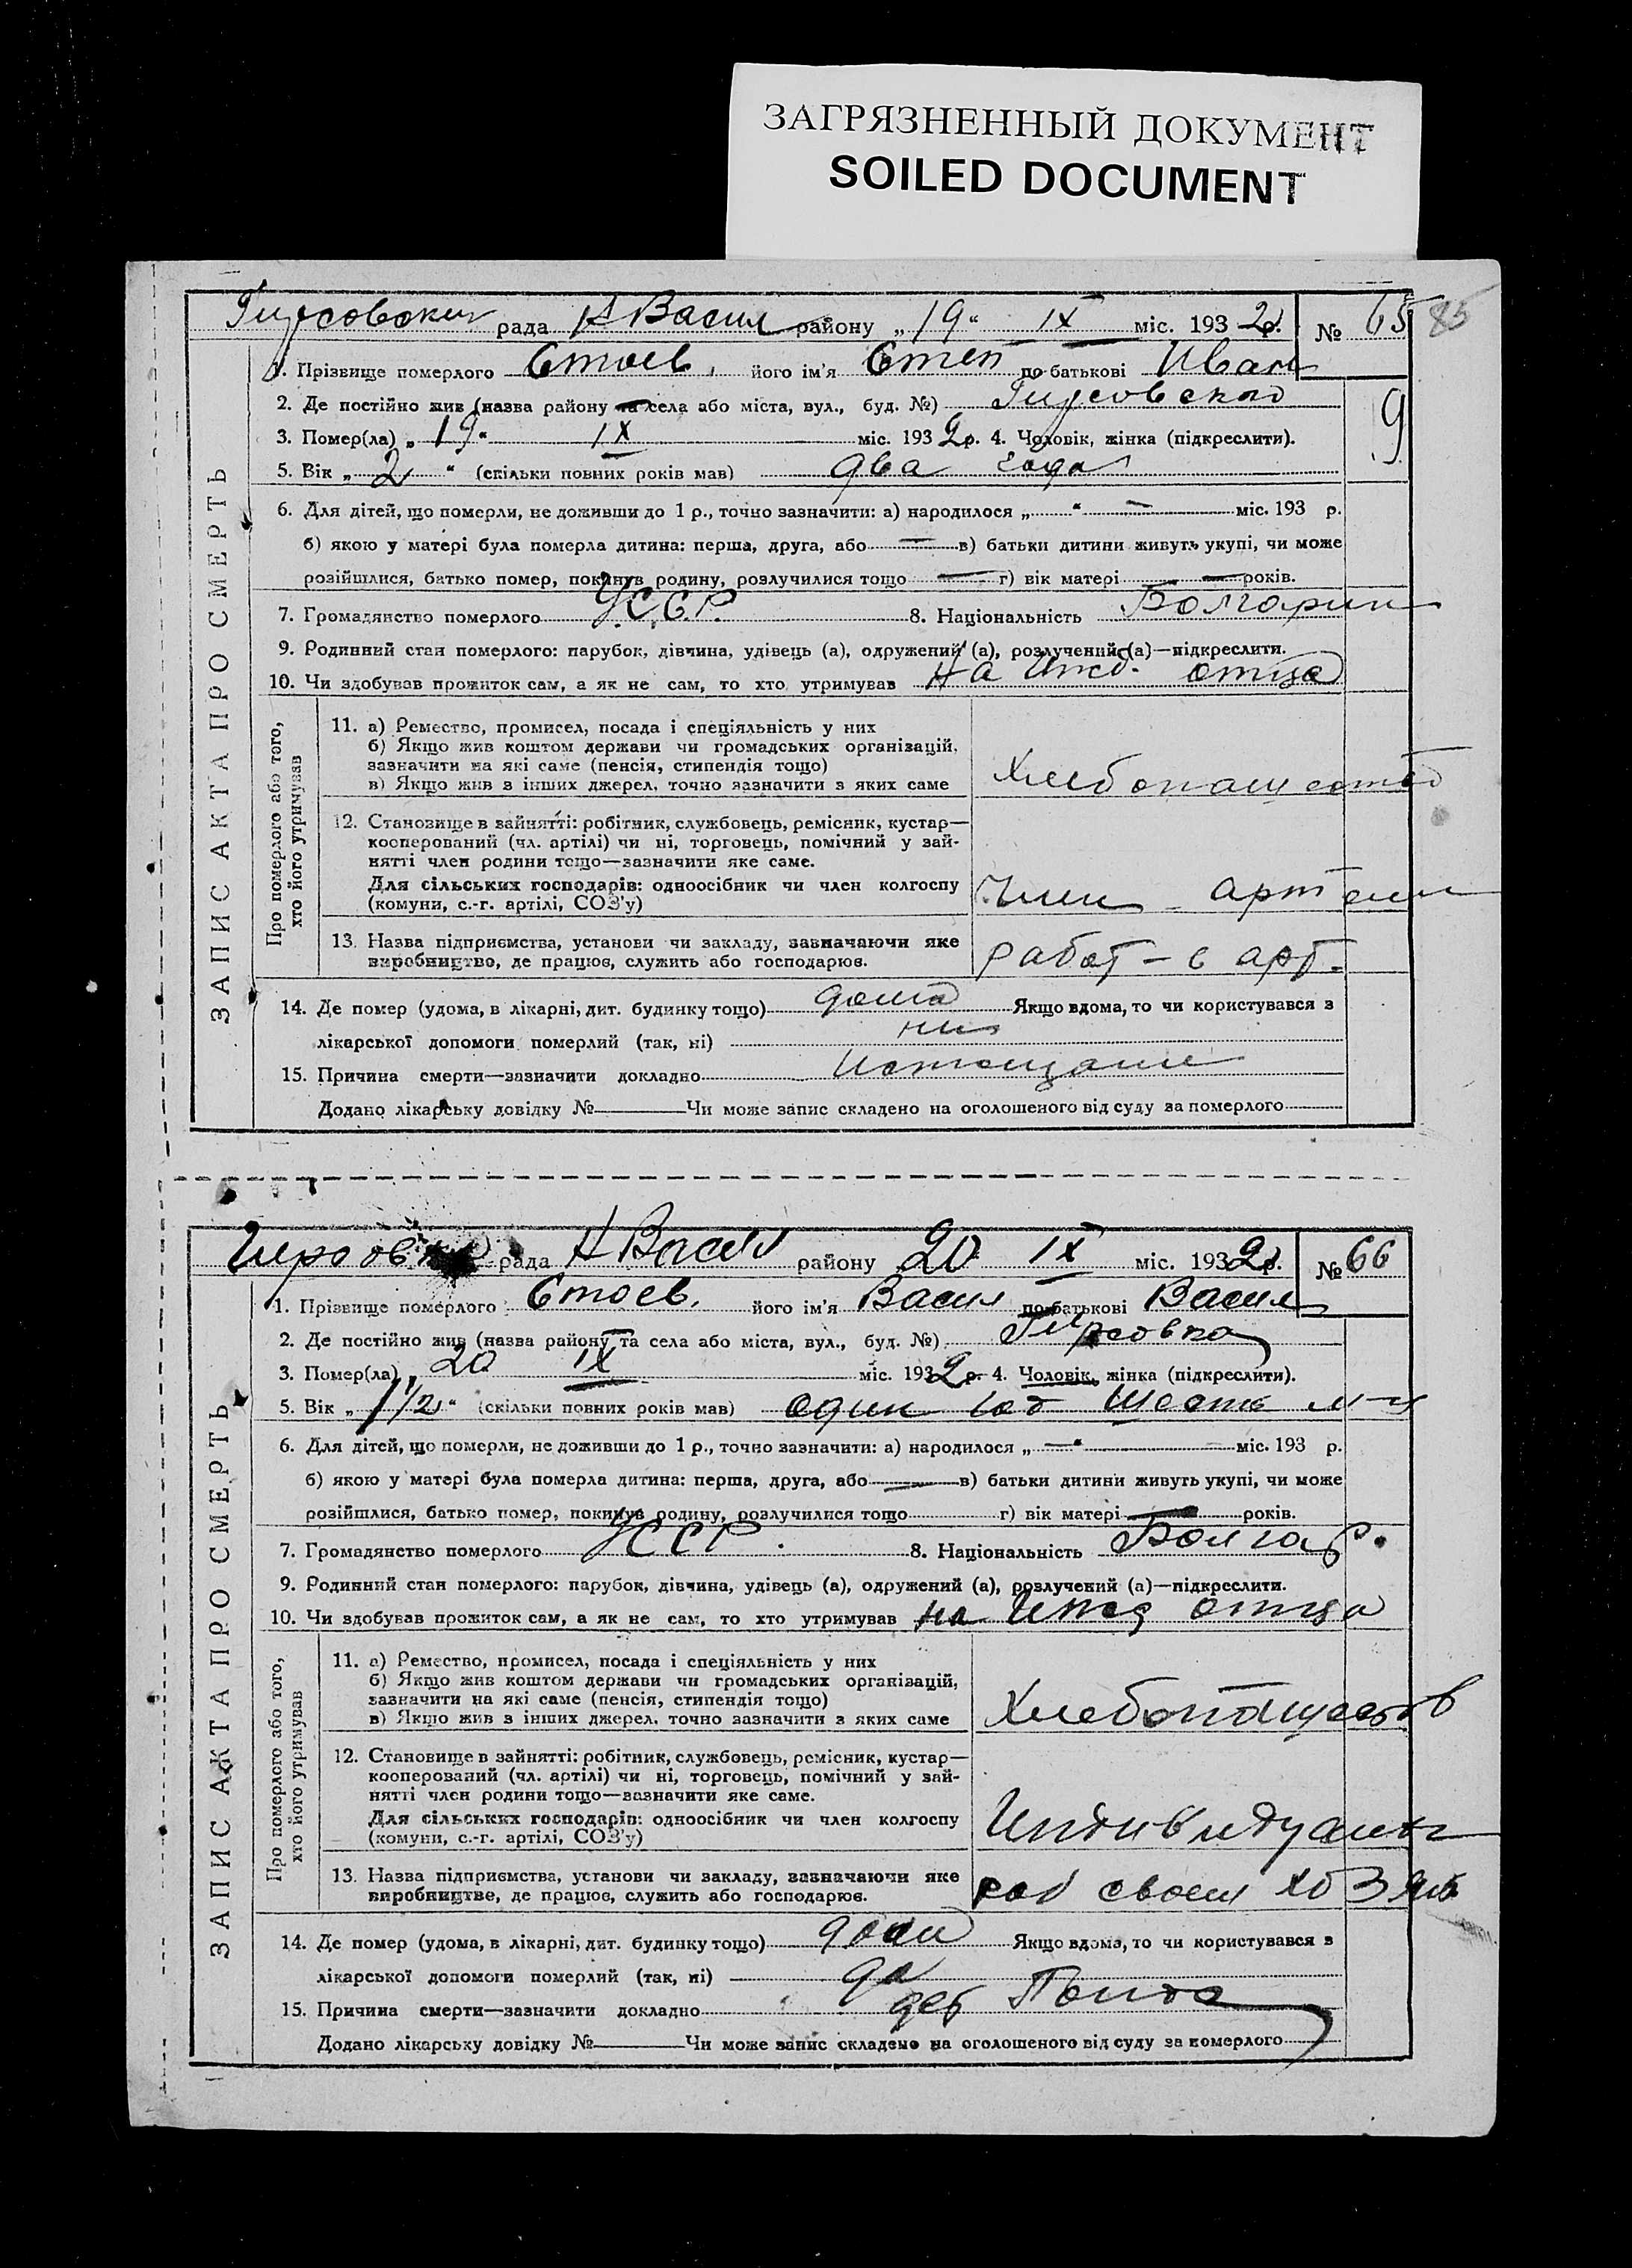 ЗАГРЯЗНЕННЫЙ ДОКУМЕНТ
SOILED DOCUMENT
Гирсовский рада Н Васил району „19“ IX міс. 1932 р. № 65 85
1. Прізвище померлого Стоев, його ім'я Степ по батькові Иван
2. Де постійно жив (назва району та села або міста, вул., буд. №) Гирсовский
9
3. Помер(ла) „19“ IX міс. 1932 р. 4. Чоловік, жінка (підкреслити).
5. Вік „2“ (скільки повних років мав) два года
6. Для дітей, що померли, не доживши до 1 р., точно зазначити: а) народилося „ “ — міс. 193 р.
б) якою у матері була померла дитина: перша, друга, або — в) батьки дитини живуть укупі, чи може
розійшлися, батько помер, покинув родину, розлучилися тощо — г) вік матері — років.
7. Громадянство померлого У.С.С.Р. 8. Національність Болгарин
9. Родинний стан померлого: парубок, дівчина, удівець (а), одружений (а), розлучений (а)—підкреслити.
10. Чи здобував прожиток сам, а як не сам, то хто утримував На ижд. отца
ЗАПИС АКТА ПРО СМЕРТЬ
Про померлого або того, хто його утримував
11. а) Ремество, промисел, посада і спеціяльність у них
б) Якщо жив коштом держави чи громадських організацій,
зазначити на які саме (пенсія, стипендія тощо)
в) Якщо жив з інших джерел, точно зазначити з яких саме
Хлебопашество
12. Становище в зайнятті: робітник, службовець, ремісник, кустар—
кооперований (чл. артілі) чи ні, торговець, помічний у зай-
нятті член родини тощо—зазначити яке саме.
Для сільських господарів: одноосібник чи член колгоспу
(комуни, с.-г. артілі, СОЗ'у)
Член артели
13. Назва підприємства, установи чи закладу, зазначаючи яке
виробництво, де працює, служить або господарює.
работ – в арт.
14. Де помер (удома, в лікарні, дит. будинку тощо) дома Якщо вдома, то чи користувався з
лікарської допомоги померлий (так, ні)
15. Причина смерти—зазначити докладно Истощание
Додано лікарську довідку № — Чи може запис складено на оголошеного від суду за померлого
рада Н Васил району 20 IX міс. 1932 р. № 66
1. Прізвище померлого Стоев. його ім'я Васил по батькові Васил
2. Де постійно жив (назва району та села або міста, вул., буд. №) Гирсовка
3. Помер(ла) „20 IX міс. 1932 р. 4. Чоловік, жінка (підкреслити).
5. Вік „1 1/2“ (скільки повних років мав) один год шесть м-ц
6. Для дітей, що померли, не доживши до 1 р., точно зазначити: а) народилося „—“ міс. 193 р.
б) якою у матері була померла дитина: перша, друга, або — в) батьки дитини живуть укупі, чи може
розійшлися, батько помер, покинув родину, розлучилися тощо г) вік матері — років.
7. Громадянство померлого УССР. 8. Національність Болгар.
9. Родинний стан померлого: парубок, дівчина, удівець (а), одружений (а), розлучений (а)—підкреслити.
10. Чи здобував прожиток сам, а як не сам, то хто утримував на ижд отца
ЗАПИС АКТА ПРО СМЕРТЬ
Про померлого або того, хто його утримував
11. а) Ремество, промисел, посада і спеціяльність у них
б) Якщо жив коштом держави чи громадських організацій,
зазначити на які саме (пенсія, стипендія тощо)
в) Якщо жив з інших джерел, точно зазначити з яких саме
Хлебопашеств
12. Становище в зайнятті: робітник, службовець, ремісник, кустар—
кооперований (чл. артілі) чи ні, торговець, помічний у зай-
нятті член родини тощо—зазначити яке саме.
Для сільських господарів: одноосібник чи член колгоспу
(комуни, с.-г. артілі, СОЗ'у)
13. Назва підприємства, установи чи закладу, зазначаючи яке
виробництве, де працює, служить або господарює.
раб своем хозяй
14. Де помер (удома, в лікарні, дит. будинку тощо) дома Якщо вдома, то чи користувався з
лікарської допомоги померлий (так, ні) да
15. Причина смерти—зазначити докладно
Додано лікарську довідку № — Чи може запис складено на оголошеного від суду за померлого